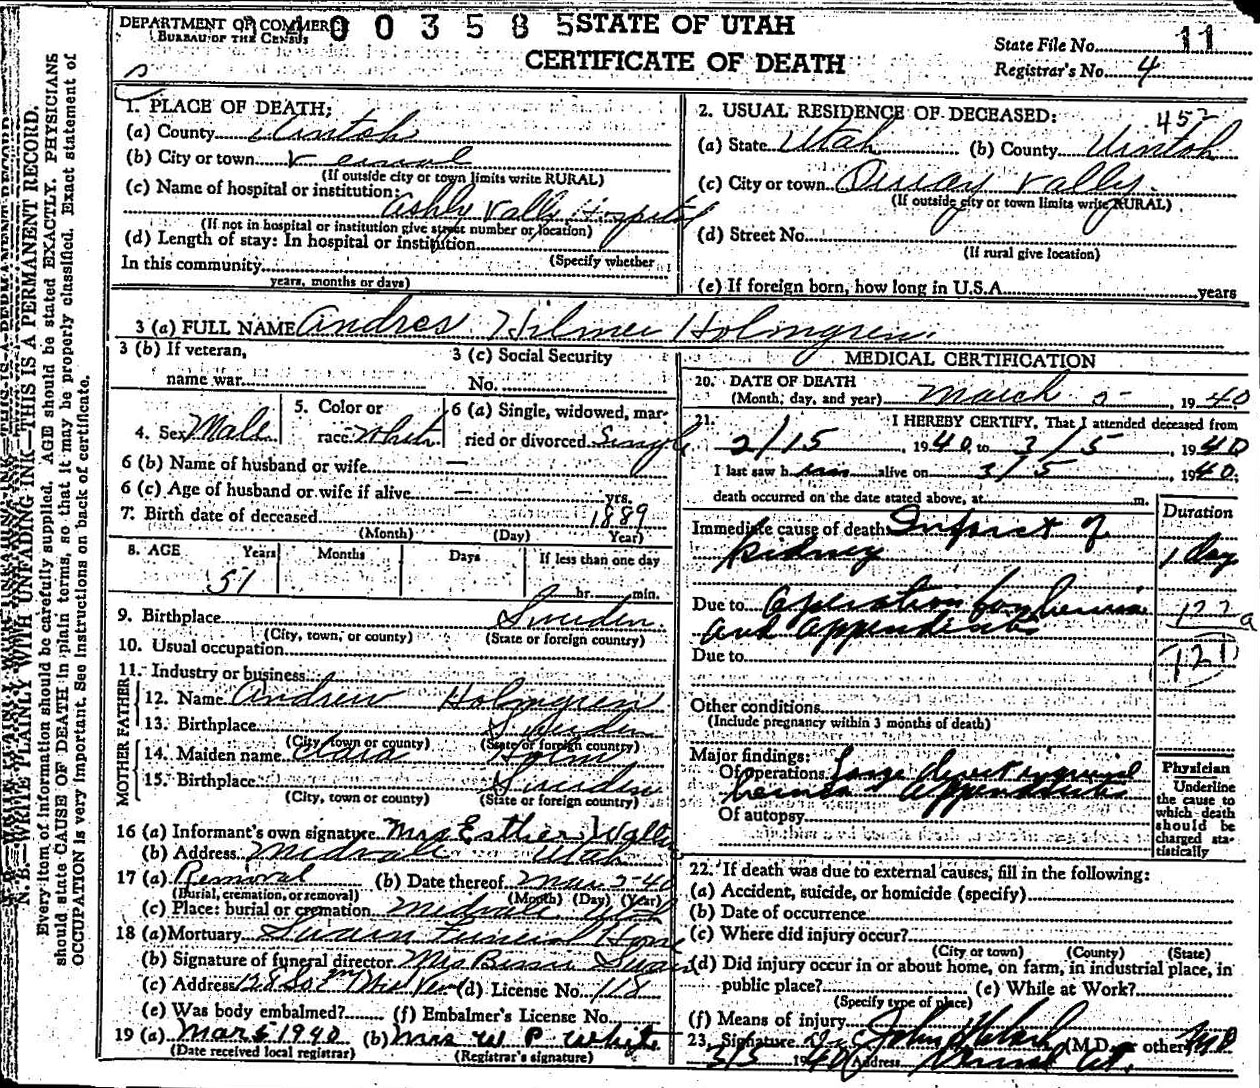 DEPARTMENT OF COMMERCE
BUREAU OF THE CENSUS
4 0 0 3 5 8 5
STATE OF UTAH
CERTIFICATE OF DEATH
State File No. 11
Registrar's No. 4
N. B.—WRITE PLAINLY WITH UNFADING INK—THIS IS A PERMANENT RECORD.
Every item of information should be carefully supplied. AGE should be stated EXACTLY. PHYSICIANS
should state CAUSE OF DEATH in plain terms, so that it may be properly classified. Exact statement of
OCCUPATION is very important. See instructions on back of certificate.
1. PLACE OF DEATH:
(a) County Uintah
(b) City or town Vernal
(If outside city or town limits write RURAL)
(c) Name of hospital or institution:
Ashly Vally Hospital
(If not in hospital or institution give street number or location)
(d) Length of stay: In hospital or institution
(Specify whether
In this community
years, months or days)
2. USUAL RESIDENCE OF DECEASED: 452
(a) State Utah (b) County Uintah
(c) City or town Ouray Vally
(If outside city or town limits write RURAL)
(d) Street No.
(If rural give location)
(e) If foreign born, how long in U.S.A. years
3 (a) FULL NAME Andres Hilmer Holmgren
3 (b) If veteran,
name war
3 (c) Social Security
No.
4. Sex Male
5. Color or
race White
6 (a) Single, widowed, mar-
ried or divorced Single
6 (b) Name of husband or wife —
6 (c) Age of husband or wife if alive — yrs.
7. Birth date of deceased 1889
(Month) (Day) Year)
8. AGE Years Months Days If less than one day
51 hr. min.
9. Birthplace Sweden
(City, town, or county) (State or foreign country)
10. Usual occupation
11. Industry or business
FATHER
12. Name Andrew Holmgren
13. Birthplace Sweden
(City, town or county) (State or foreign country)
MOTHER
14. Maiden name Clara Holm
15. Birthplace Sweden
(City, town or county) (State or foreign country)
16 (a) Informant's own signature Mrs Esther
(b) Address Midvale Utah
17 (a) Removal (b) Date thereof Mar 5-40
(Burial, cremation, or removal) (Month) (Day) (Year)
(c) Place: burial or cremation Midvale Utah
18 (a) Mortuary Swain Funeral Home
(b) Signature of funeral director Mrs Bessie Swain
(c) Address (d) License No. 118
(e) Was body embalmed? (f) Embalmer's License No.
19 (a) Mar 5 1940 (b) Mrs W P White
(Date received local registrar) (Registrar's signature)
MEDICAL CERTIFICATION
20. DATE OF DEATH
(Month, day, and year) March 5-, 1940
21. I HEREBY CERTIFY, That I attended deceased from
2/15, 1940, to 3/5, 1940
I last saw him alive on 3/5 1940;
death occurred on the date stated above, at m.
Duration
Immediate cause of death Infarct of
Kidney 1 day
Due to Operation for hernia 122a
and appendicitis
Due to 121
Other conditions
(Include pregnancy within 3 months of death)
Major findings:
Of operations Large direct inguinal
hernia & appendicitis
Of autopsy
Physician
Underline
the cause to
which death
should be
charged sta-
tistically
22. If death was due to external causes, fill in the following:
(a) Accident, suicide, or homicide (specify)
(b) Date of occurrence
(c) Where did injury occur?
(City or town) (County) (State)
(d) Did injury occur in or about home, on farm, in industrial place, in
public place? (e) While at Work?
(Specify type of place)
(f) Means of injury
23. Signature John (M.D. or other) MD
3/5 1940 Address Vernal Ut.